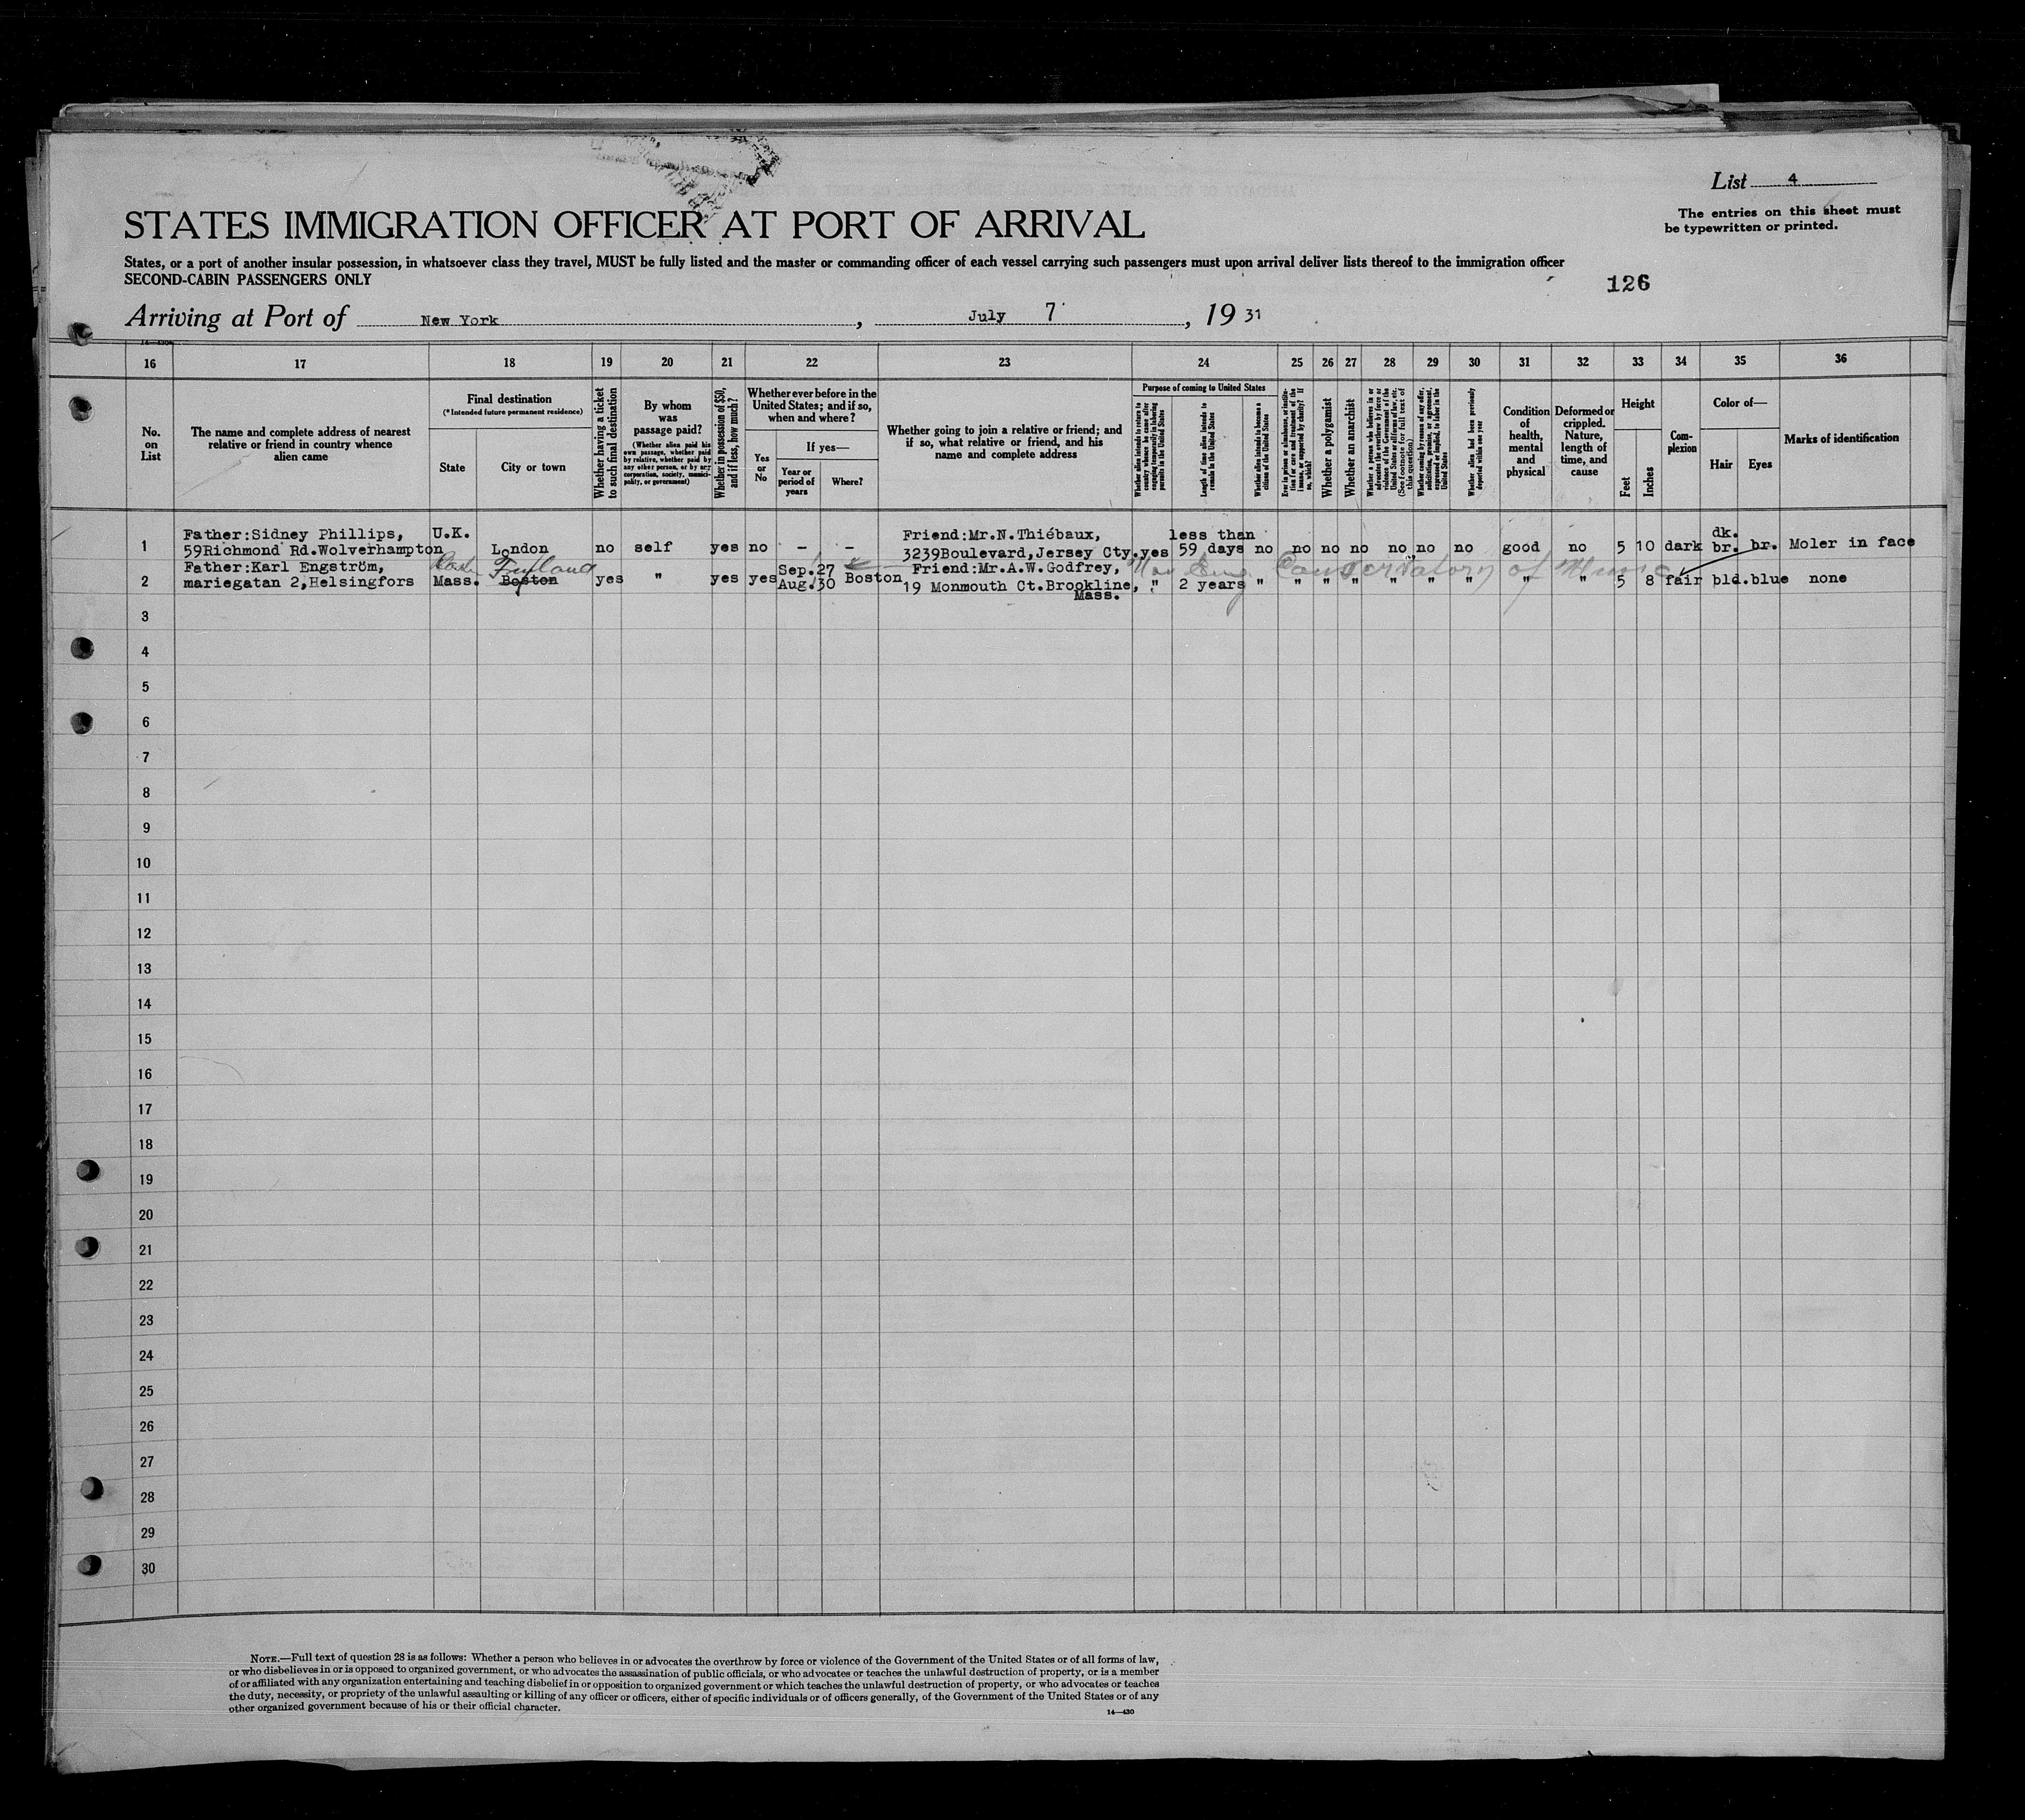 List 4
The entries on this sheet must
be typewritten or printed.
STATES IMMIGRATION OFFICER AT PORT OF ARRIVAL
States, or a port of another insular possession, in whatsoever class they travel, MUST be fully listed and the master or commanding officer of each vessel carrying such passengers must upon arrival deliver lists thereof to the immigration officer
SECOND-CABIN PASSENGERS ONLY
126
Arriving at Port of New York, July 7, 1931
14—430
16 17 18 19 20 21 22 23 24 25 26 27 28 29 30 31 32 33 34 35 36
No.
on
List
The name and complete address of nearest
relative or friend in country whence
alien came
Final destination
(*Intended future permanent residence)
State
City or town
Whether having a ticket
to such final destination
By whom
was
passage paid?
(Whether alien paid his
own passage, whether paid
by relative, whether paid by
any other person, or by any
corporation, society, munici-
pality, or government)
Whether in possession of $50,
and if less, how much?
Whether ever before in the
United States; and if so,
when and where?
Yes
or
No
If yes—
Year or
period of
years
Where?
Whether going to join a relative or friend; and
if so, what relative or friend, and his
name and complete address
Purpose of coming to United States
Whether alien intends to return to
country whence he came after
engaging temporarily in laboring
pursuits in the United States
Length of time alien intends to
remain in the United States
Whether alien intends to become a
citizen of the United States
Ever in prison or almshouse, or institu-
tion for care and treatment of the
insane, or supported by charity? If
so, which?
Whether a polygamist
Whether an anarchist
Whether a person who believes in or
advocates the overthrow by force or
violence of the Government of the
United States or all forms of law, etc.
(See footnote for full text of
this question)
Whether coming by reason of any offer,
solicitation, promise, or agreement,
expressed or implied, to labor in the
United States
Whether alien had been previously
deported within one year
Condition
of
health,
mental
and
physical
Deformed or
crippled.
Nature,
length of
time, and
cause
Height
Feet
Inches
Com-
plexion
Color of—
Hair
Eyes
Marks of identification
Father:Sidney Phillips, U.K. Friend:Mr.N.Thiébaux, less than dk.
1 59Richmond Rd.Wolverhampton London no self yes no - - 3239Boulevard,Jersey Cty. yes 59 days no no no no no no no good no 5 10 dark br. br. Moler in face
Father:Karl Engström, Finland Sep.27 Friend:Mr.A.W.Godfrey, Eng. Conservatory of Music
2 mariegatan 2,Helsingfors Mass. Boston yes " yes yes Aug.30 Boston 19 Monmouth Ct.Brookline, " 2 years " " " " " " " " " 5 8 fair bld. blue none
Mass.
3
4
5
6
7
8
9
10
11
12
13
14
15
16
17
18
19
20
21
22
23
24
25
26
27
28
29
30
NOTE.—Full text of question 28 is as follows: Whether a person who believes in or advocates the overthrow by force or violence of the Government of the United States or of all forms of law,
or who disbelieves in or is opposed to organized government, or who advocates the assassination of public officials, or who advocates or teaches the unlawful destruction of property, or is a member
of or affiliated with any organization entertaining and teaching disbelief in or opposition to organized government or which teaches the unlawful destruction of property, or who advocates or teaches
the duty, necessity, or propriety of the unlawful assaulting or killing of any officer or officers, either of specific individuals or of officers generally, of the Government of the United States or of any
other organized government because of his or their official character.
14—430